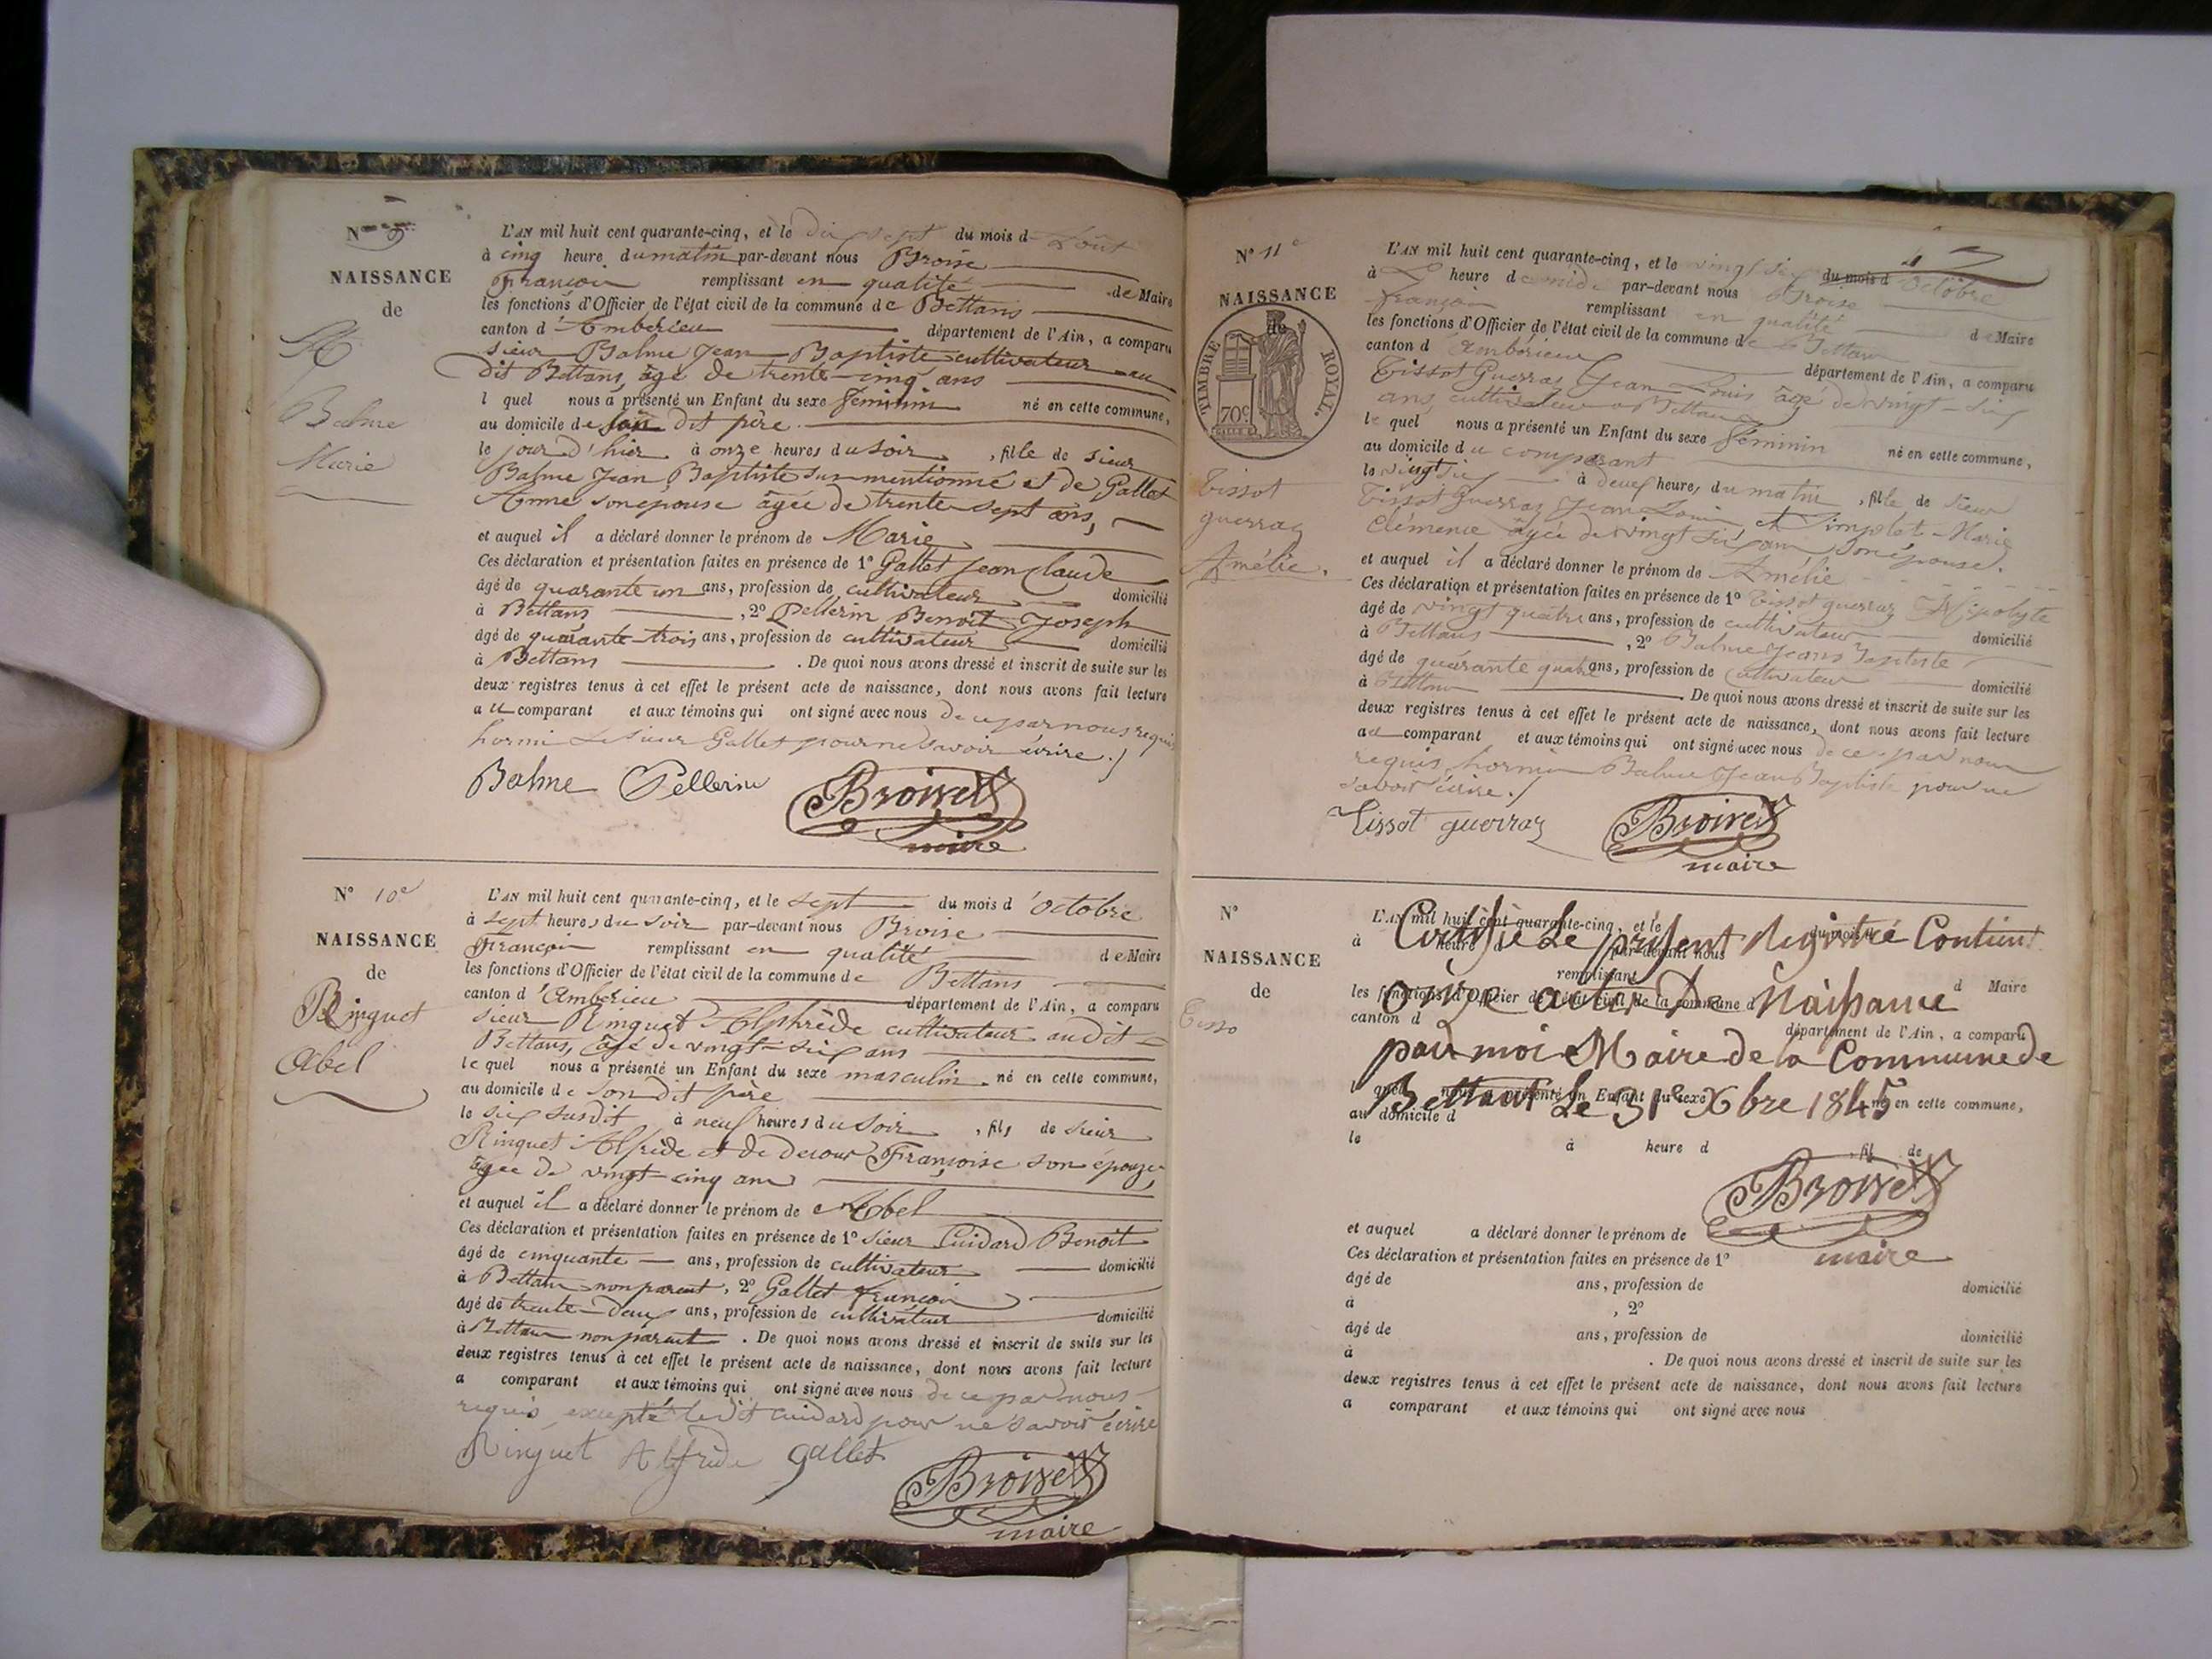 N° 9
NAISSANCE
de
Balme
Marie
L'AN mil huit cent quarante-cinq, et le dix sept du mois d'Août
à cinq heure du matin par-devant nous Broise
François remplissant en qualité de Maire
les fonctions d'Officier de l'état civil de la commune de Bettans
canton d'Ambérieu département de l'Ain, a comparu
sieur Balme Jean Baptiste cultivateur au
dit Bettans, âgé de trente-cinq ans
l quel nous a présenté un Enfant du sexe féminin né en cette commune,
au domicile de son dit père.
le jour d'hier à onze heures du soir, fille de sieur
Balme Jean Baptiste sus mentionné et de Gallet
Anne son épouse âgée de trente-sept ans,
et auquel il a déclaré donner le prénom de Marie
Ces déclaration et présentation faites en présence de 1° Gallet Jean Claude
âgé de quarante un ans, profession de cultivateur domicilié
à Bettans, 2° Pellerin Benoît Joseph
âgé de quarante-trois ans, profession de cultivateur domicilié
à Bettans. De quoi nous avons dressé et inscrit de suite sur les
deux registres tenus à cet effet le présent acte de naissance, dont nous avons fait lecture
au comparant et aux témoins qui ont signé avec nous de ce par nous requis
hormi le sieur Gallet pour ne savoir écrire./
Balme Pellerin Broise
maire
N° 10e
NAISSANCE
de
Ringuet
Abel
L'AN mil huit cent quarante-cinq, et le sept du mois d'octobre
à sept heures du soir par-devant nous Broise
François remplissant en qualité de Maire
les fonctions d'Officier de l'état civil de la commune de Bettans
canton d'Ambérieu département de l'Ain, a comparu
sieur Ringuet Alphrède cultivateur audit
Bettans, âgé de vingt-six ans
le quel nous a présenté un Enfant du sexe masculin né en cette commune,
au domicile de son dit père
le six susdit à neuf heures du soir, fils de sieur
Ringuet Alfrède et de Françoise son épouze
âgée de vingt-cinq ans
et auquel il a déclaré donner le prénom de Abel
Ces déclaration et présentation faites en présence de 1° sieur Cuidard Benoît
âgé de cinquante ans, profession de cultivateur domicilié
à Bettans non parent, 2° Gallet françois
âgé de trente-deux ans, profession de cultivateur domicilié
à Bettans non parent. De quoi nous avons dressé et inscrit de suite sur les
deux registres tenus à cet effet le présent acte de naissance, dont nous avons fait lecture
a comparant et aux témoins qui ont signé avec nous de ce par nous
requis excepté ledit Cuidard pour ne savoir écrire
Ringuet Alfrède gallet Broise
maire
N° 11e
NAISSANCE
de
TIMBRE ROYAL.
70c
Tissot
guerraz
Amélie.
L'AN mil huit cent quarante-cinq, et le vingt six du mois d'octobre
à heure de midi par-devant nous Broise
françois remplissant en qualité de Maire
les fonctions d'Officier de l'état civil de la commune de Bettans
canton d'Ambérieu département de l'Ain, a comparu
Tissot Guerraz Jean Louis âgé de vingt-six
ans, cultivateur à Bettans
le quel nous a présenté un Enfant du sexe féminin né en cette commune,
au domicile du comparant
le vingt six à deux heures du matin, fille de sieur
Tissot Guerraz Jean Louis et Marie
Clémence âgée de vingt six ans son épouse.
et auquel il a déclaré donner le prénom de Amélie
Ces déclaration et présentation faites en présence de 1° Tissot guerraz Hipolyte
âgé de vingt quatre ans, profession de cultivateur domicilié
à Bettans, 2° Balme Jean Baptiste
âgé de quarante quatre ans, profession de cultivateur domicilié
à Bettans. De quoi nous avons dressé et inscrit de suite sur les
deux registres tenus à cet effet le présent acte de naissance, dont nous avons fait lecture
au comparant et aux témoins qui ont signé avec nous de ce par nous
requis, hormi Balme Jean Baptiste pour ne
savoir écrire./
Tissot guerraz Broise
maire
N°
NAISSANCE
de
Tisso
L'AN mil huit cent quarante-cinq, et le du mois d
Certifie le présent Registre Contient
à heure d par-devant nous
remplissant d Maire
onze actes De Naissance
les fonctions d'Officier de l'état civil de la commune d
canton d département de l'Ain, a comparu
par moi Maire de la Commune de
Bettans le 31e Xbre 1845
quel nous a présenté un Enfant du sexe né en cette commune,
au domicile d
le à heure d , fil de
Broise
maire
et auquel a déclaré donner le prénom de
Ces déclaration et présentation faites en présence de 1°
âgé de ans, profession de domicilié
à , 2°
âgé de ans, profession de domicilié
à . De quoi nous avons dressé et inscrit de suite sur les
deux registres tenus à cet effet le présent acte de naissance, dont nous avons fait lecture
a comparant et aux témoins qui ont signé avec nous